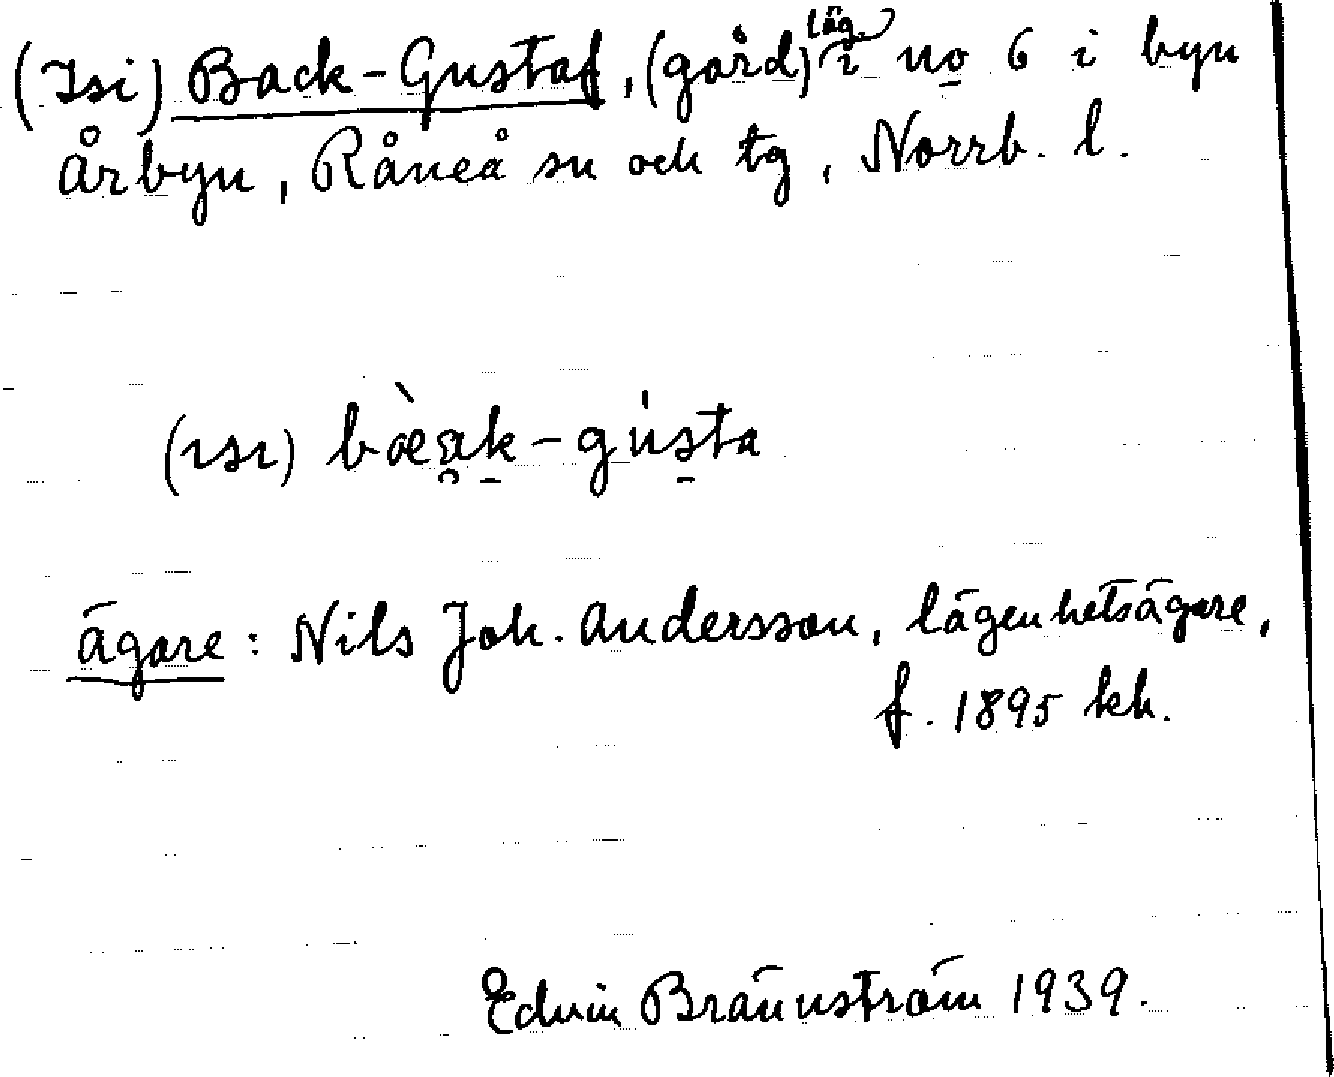 (Isi) Back-Gustaf, (gård) läg. i no 6 i byn
Årbyn, Råneå sn och tg, Norrb. l.
(ɪsɪ) bæ̀ḁk-gústa
ägare: Nils Joh. Andersson, lägenhetsägare,
f. 1895 kh.
Edvin Brännström 1939.